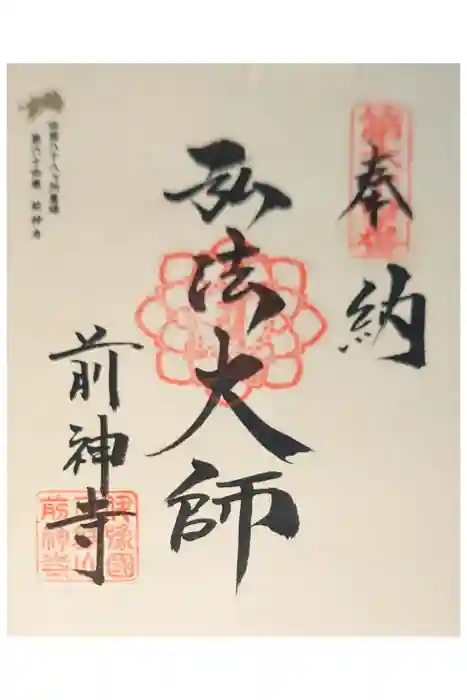 奉納
弘法大師
前神寺
伊豫國
前神寺
四国八十八ヶ所霊場
第六十四番 前神寺